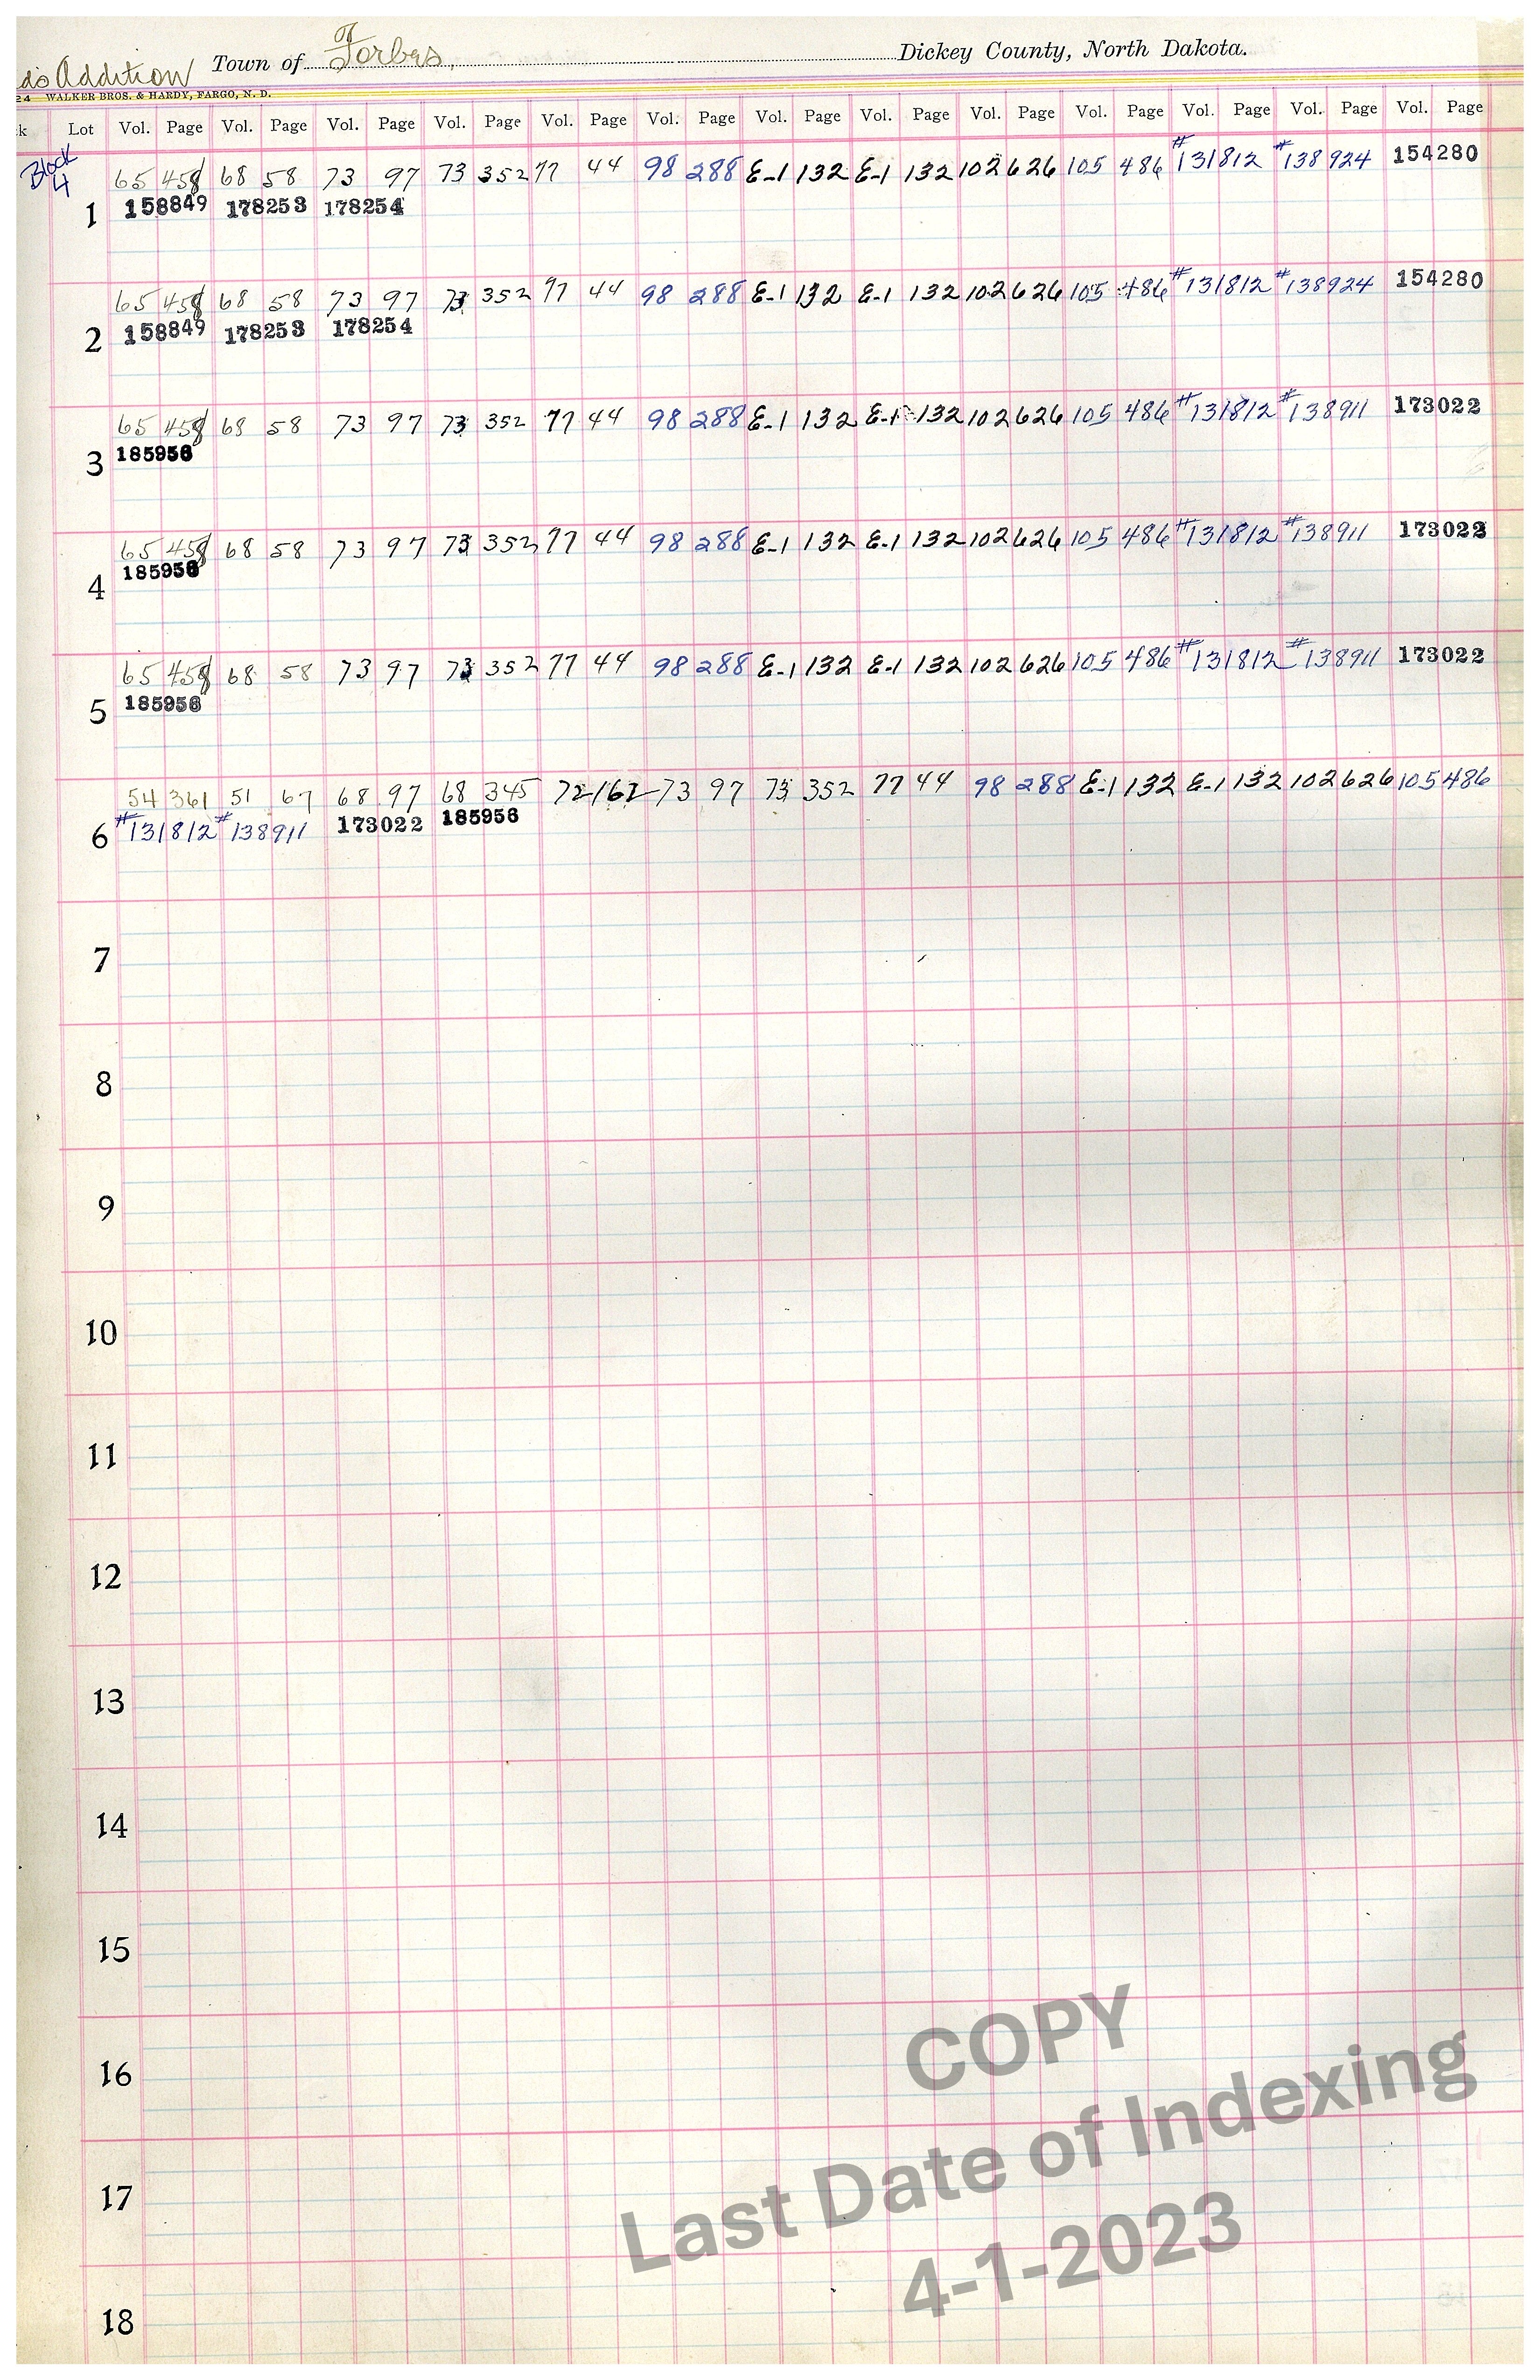 d's Addition Town of Forbes, Dickey County, North Dakota.
24 WALKER BROS. & HARDY, FARGO, N. D.
k Lot Vol. Page Vol. Page Vol. Page Vol. Page Vol. Page Vol. Page Vol. Page Vol. Page Vol. Page Vol. Page Vol. Page Vol. Page Vol. Page
Block 4
65 458 68 58 73 97 73 352 77 44 98 288 E-1 132 E-1 132 102 626 105 486 #131812 #138924 154280
1 158849 178253 178254
65 458 68 58 73 97 73 352 77 44 98 288 E-1 132 E-1 132 102 626 105 486 #131812 #138924 154280
2 158849 178253 178254
65 458 68 58 73 97 73 352 77 44 98 288 E-1 132 E-1 132 102 626 105 486 #131812 #138911 173022
3 185956
65 458 68 58 73 97 73 352 77 44 98 288 E-1 132 E-1 132 102 626 105 486 #131812 #138911 173022
4 185956
65 458 68 58 73 97 73 352 77 44 98 288 E-1 132 E-1 132 102 626 105 486 #131812 #138911 173022
5 185956
54 361 51 67 68 97 68 345 72 162 73 97 73 352 77 44 98 288 E-1 132 E-1 132 102 626 105 486
6 #131812 #138911 173022 185956
7
8
9
10
11
12
13
14
15
16
17
18
COPY
Last Date of Indexing
4-1-2023